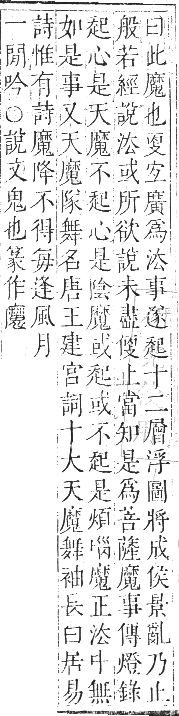 曰此魔也更宜廣爲法事遂起十二層浮圖將成侯景亂乃止
般若經說法或所欲說未盡便止當知是爲菩薩魔事傳燈錄
起心是天魔不起心是陰魔或起或不起是煩惱魔正法中無
如是事又天魔隊舞名唐王建宮詞十大天魔舞袖長白居易
詩惟有詩魔降不得每逢風月
一閒吟○說文鬼也篆作魔